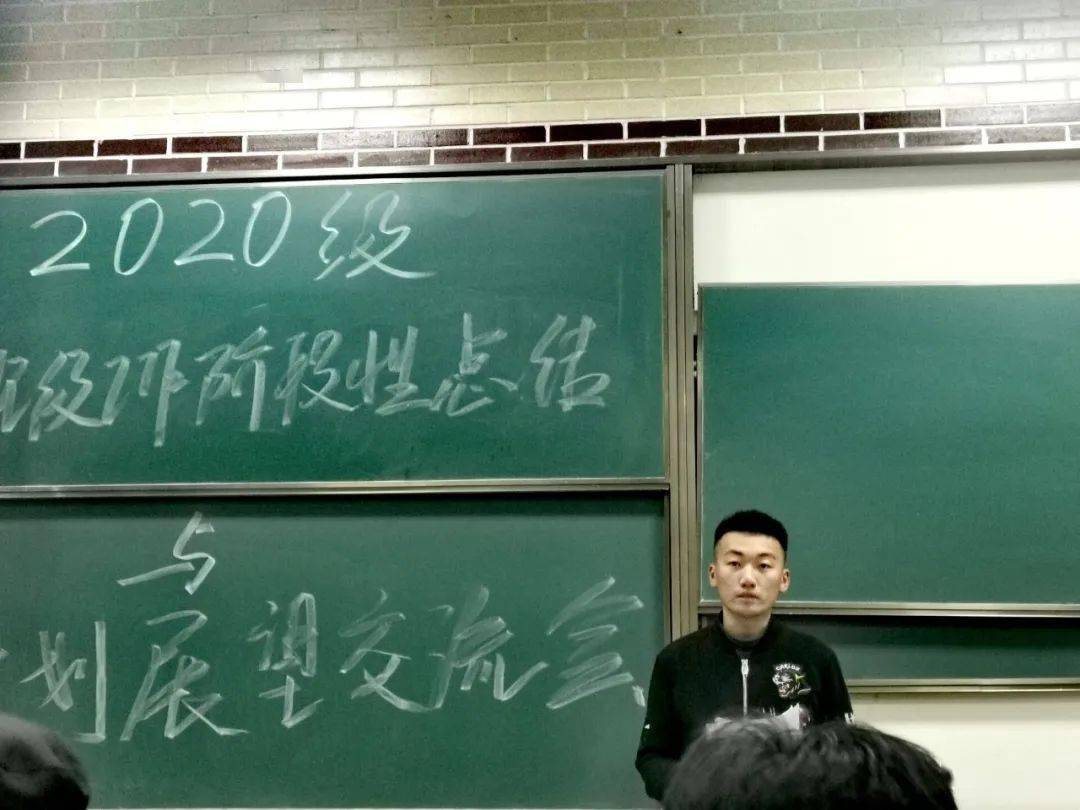 2020级
级工作阶段性总结
与
划展望交流会